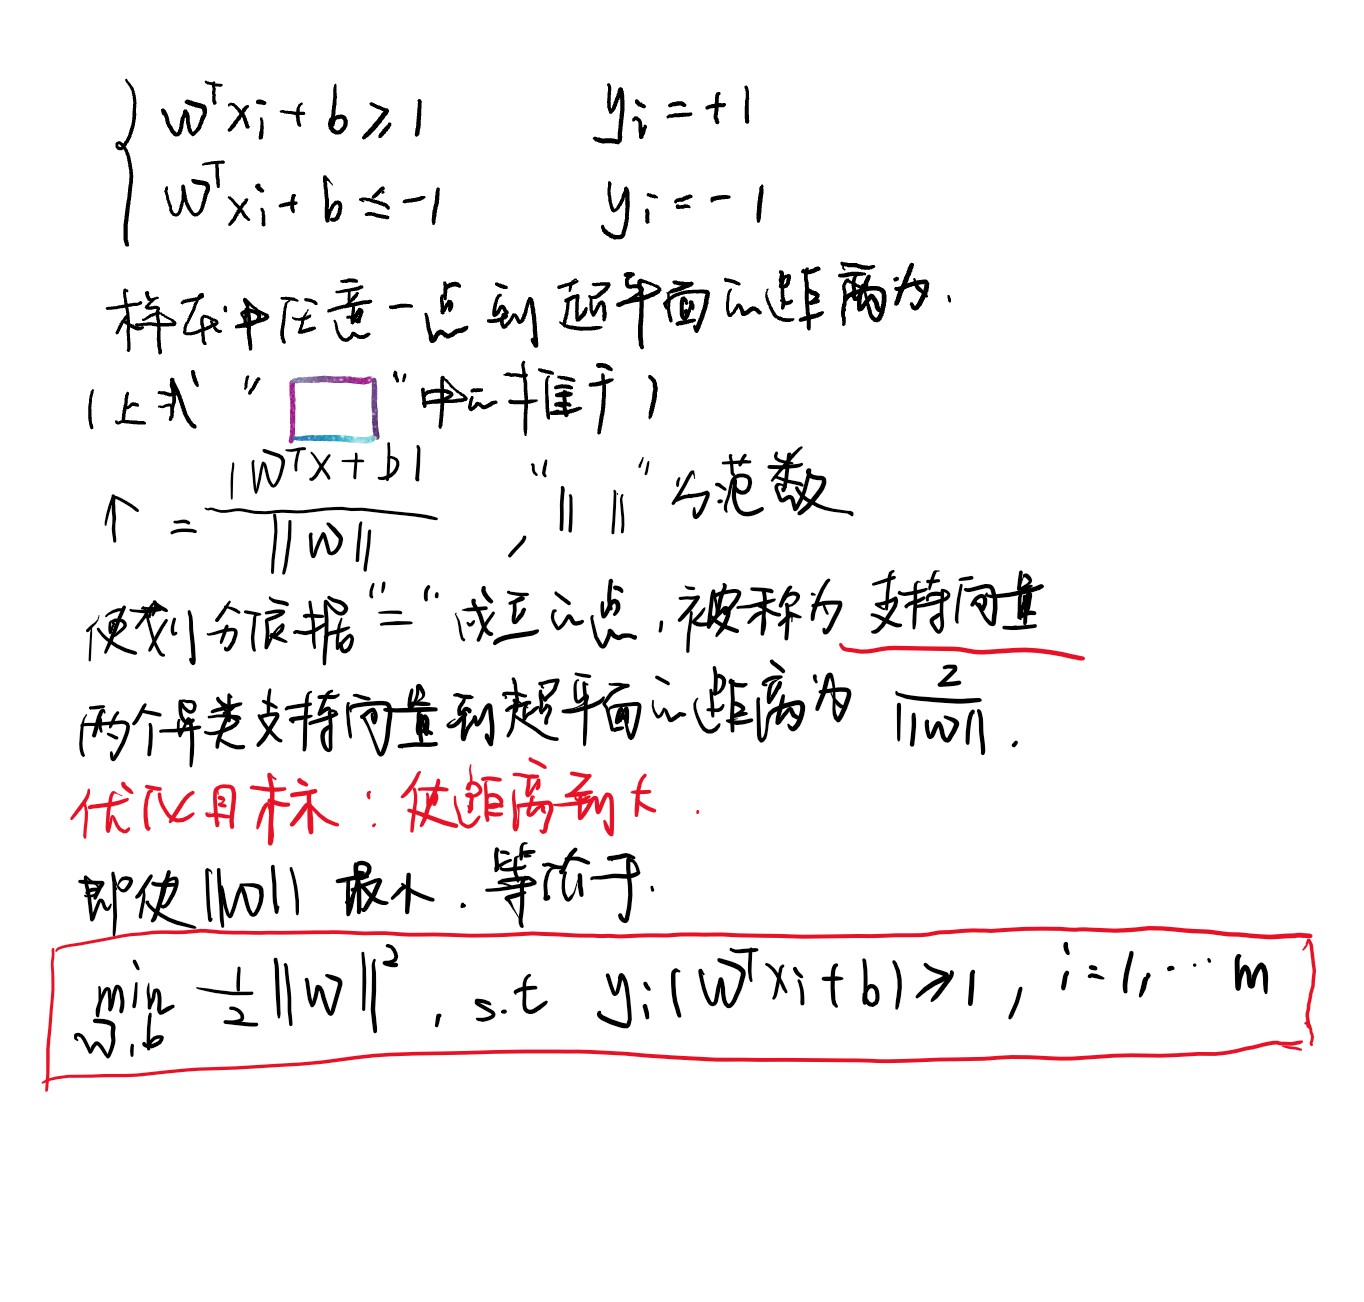 { wᵀxi + b ≥ 1 yi = +1
wᵀxi + b ≤ -1 yi = -1
样本中任意一点到超平面的距离为.
(上式 "□" 中的推于)
↑ = |wᵀx + b| / ||w|| , "|| ||" 为范数
使划分依据 "=" 成立的点, 被称为 支持向量
两个异类支持向量到超平面的距离为 2/||w|| .
优化目标: 使距离到大.
即使 ||w|| 最小. 等价于.
min w,b 1/2 ||w||² , s.t yi(wᵀxi + b) ≥ 1 , i = 1, ⋯ m